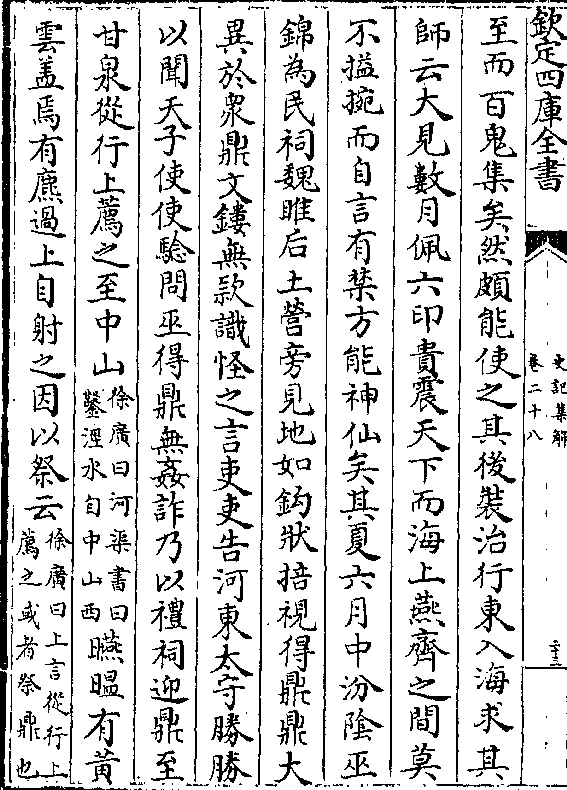 欽定四庫全書
史記集解
卷二十八
二十三
至而百鬼集矣然頗能使之其後裝治行東入海求其
師云大見數月佩六印貴震天下而海上燕齊之間莫
不搤捥而自言有禁方能神仙矣其夏六月中汾陰巫
錦為民祠魏脽后土營旁見地如鈎狀掊視得鼎鼎大
異於衆鼎文鏤無款識怪之言吏吏告河東太守勝勝
以聞天子使使驗問巫得鼎無姦詐乃以禮祠迎鼎至
甘泉從行上薦之至中山徐廣曰河渠書曰鑿涇水自中山西曣㬈有黃
雲蓋焉有麃過上自射之因以祭云徐廣曰上言從行上薦之或者祭鼎也